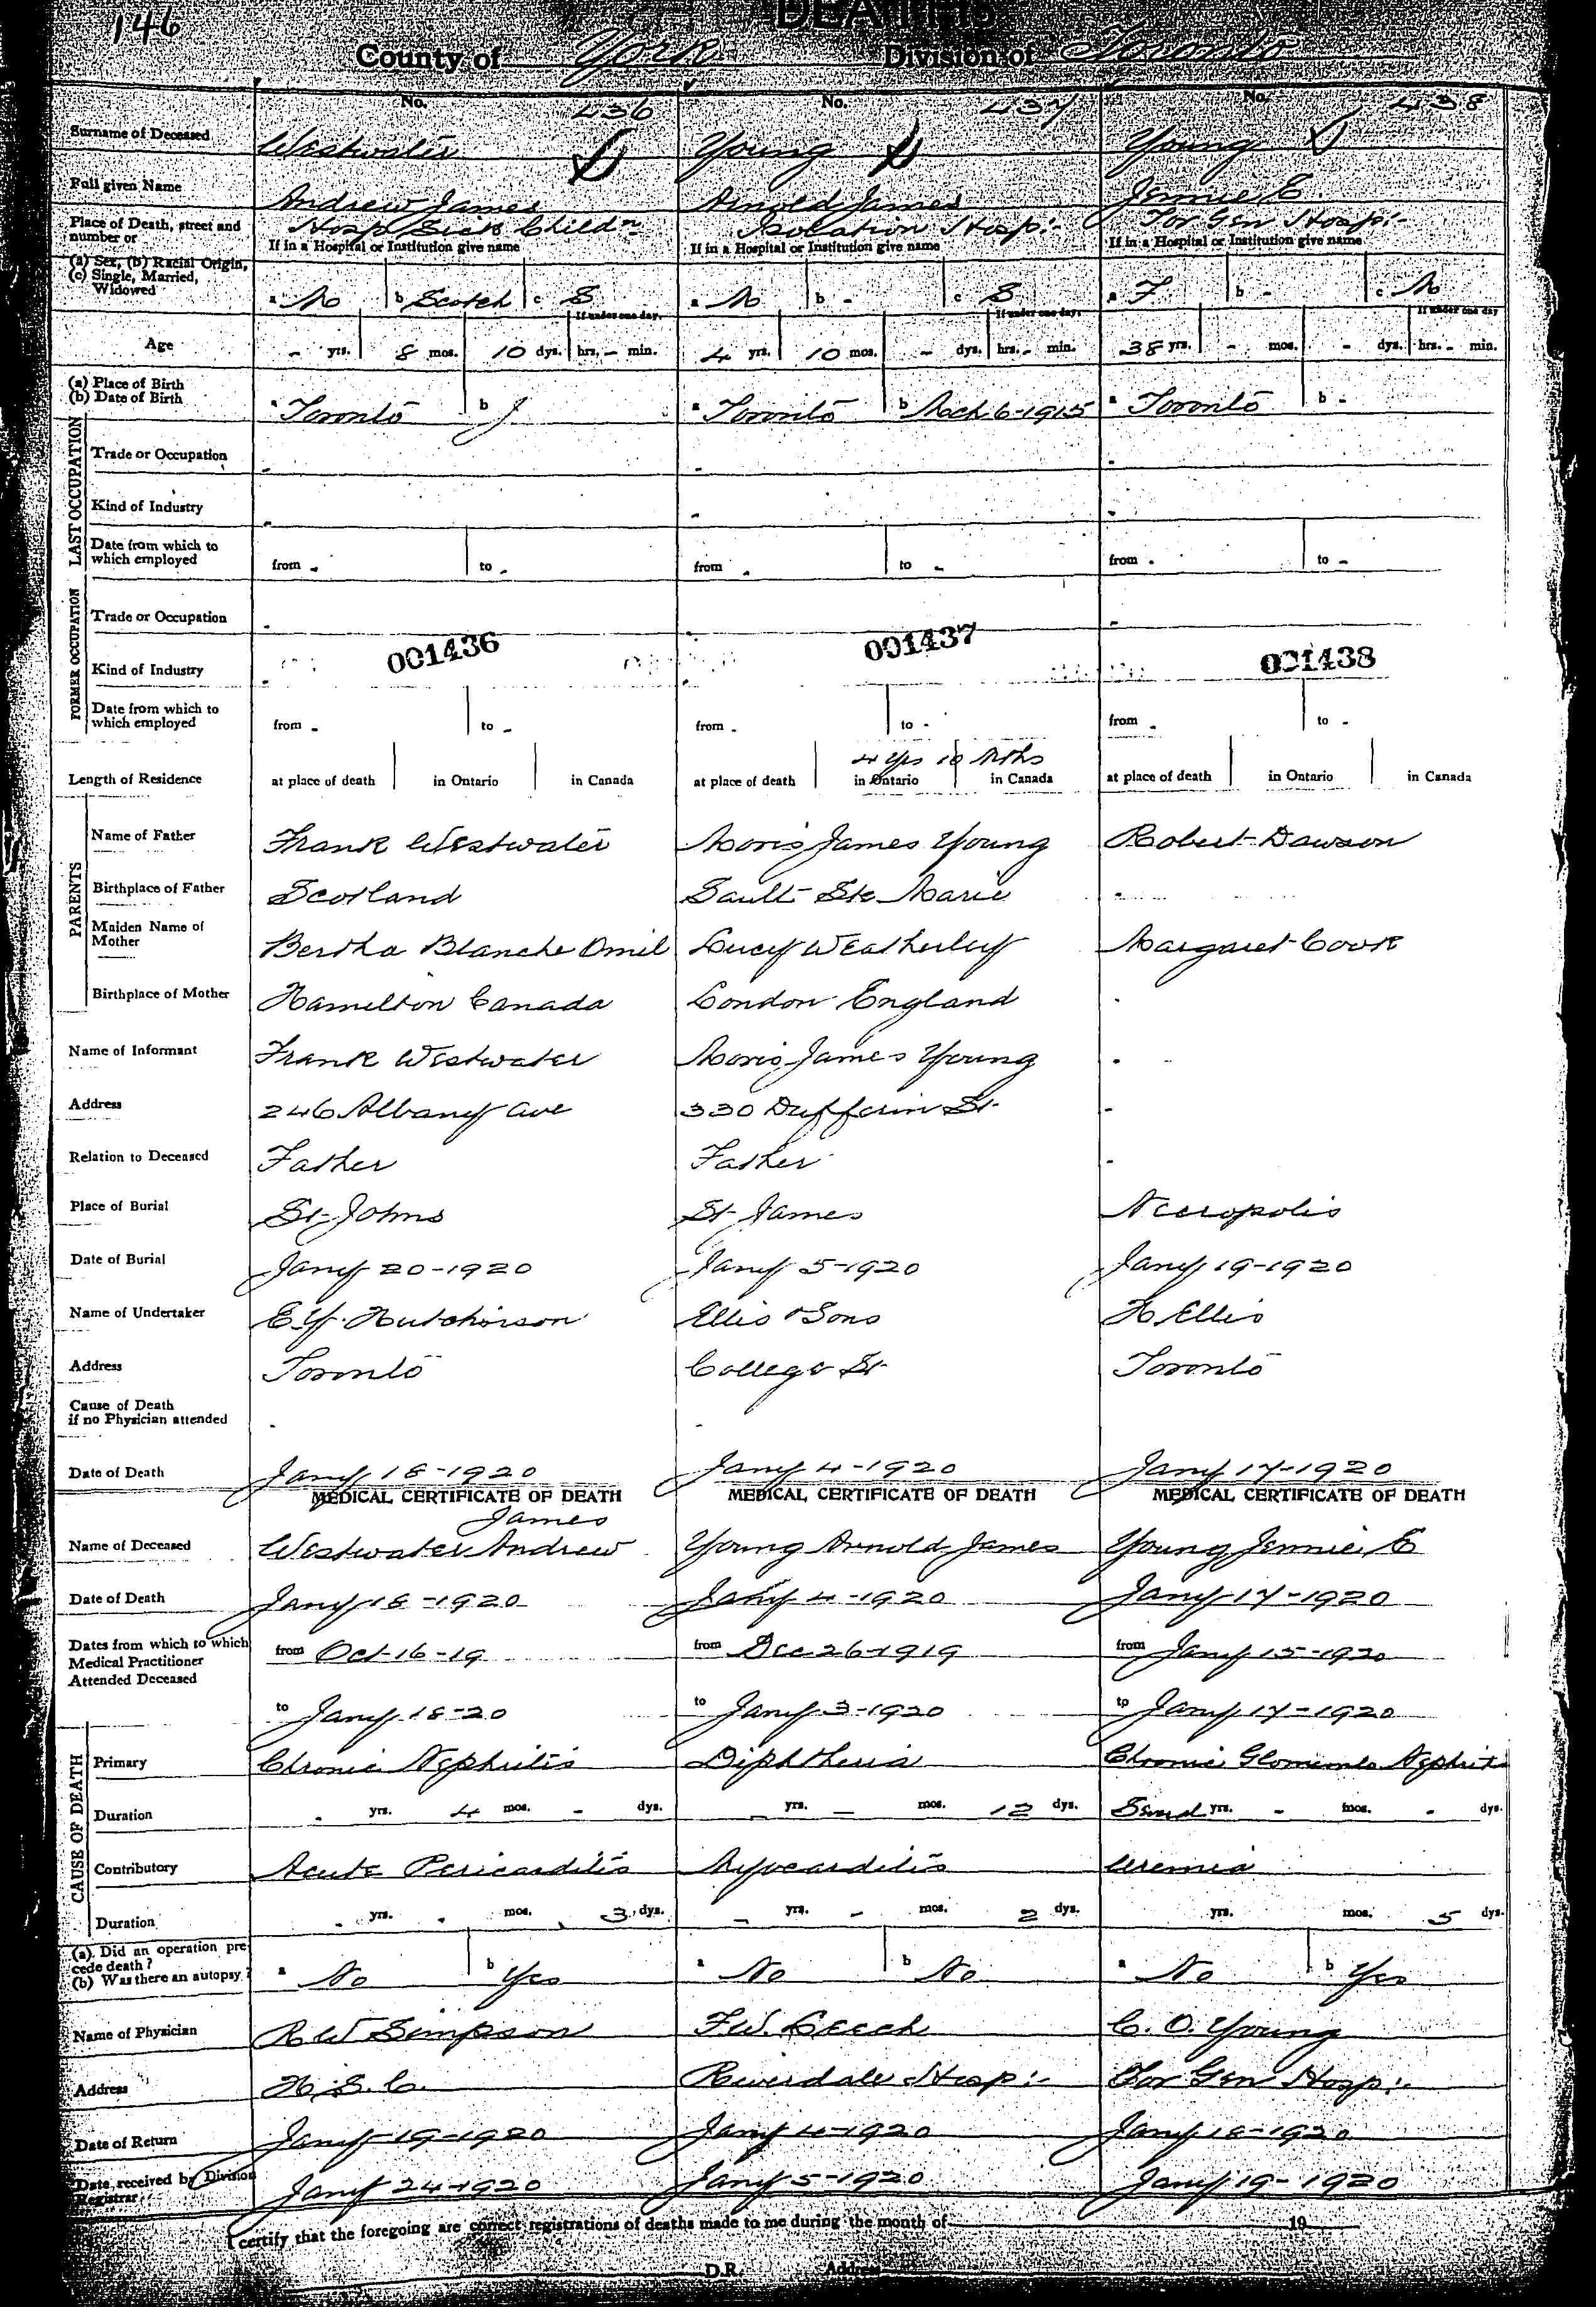 146
DEATHS
County of York Division of Toronto
No. 436 No. 437 No. 438
Surname of Deceased Westwater Young Young
Full given Name Andrew James Arnold James Jennie E
Place of Death, street and number or Hosp Sick Childn Isolation Hosp:- Tor Gen Hosp:-
If in a Hospital or Institution give name If in a Hospital or Institution give name If in a Hospital or Institution give name
(a) Sex, (b) Racial Origin, (c) Single, Married, Widowed a M b Scotch c S a M b - c S a F b - c M
If under one day. If under one day. If under one day
Age - yrs. 8 mos. 10 dys. hrs. - min. 4 yrs. 10 mos. - dys. hrs. - min. 38 yrs. - mos. - dys. hrs. - min.
(a) Place of Birth (b) Date of Birth a Toronto b a Toronto b Mch 6-1915 a Toronto b -
LAST OCCUPATION
Trade or Occupation - - -
Kind of Industry - - -
Date from which to which employed from - to - from - to - from - to -
FORMER OCCUPATION
Trade or Occupation - - -
Kind of Industry - 001436 - 001437 001438
Date from which to which employed from - to - from - to - from - to -
4 yrs 10 Mths
Length of Residence at place of death in Ontario in Canada at place of death in Ontario in Canada at place of death in Ontario in Canada
PARENTS
Name of Father Frank Westwater Moris James Young Robert Dawson
Birthplace of Father Scotland Sault Ste Marie -
Maiden Name of Mother Bertha Blanche Omil Lucy Weatherley Margaret Cook
Birthplace of Mother Hamilton Canada London England -
Name of Informant Frank Westwater Moris James Young -
Address 246 Albany ave 330 Dufferin St. -
Relation to Deceased Father Father -
Place of Burial St Johns St James Necropolis
Date of Burial Jany 20-1920 Jany 5-1920 Jany 19-1920
Name of Undertaker E.Y. Hutchinson Ellis & Sons H Ellis
Address Toronto College St Toronto
Cause of Death if no Physician attended - -
Date of Death Jany 18-1920 Jany 4-1920 Jany 17-1920
MEDICAL CERTIFICATE OF DEATH MEDICAL CERTIFICATE OF DEATH MEDICAL CERTIFICATE OF DEATH
James
Name of Deceased Westwater Andrew Young Arnold James Young Jennie E
Date of Death Jany 18-1920 Jany 4-1920 Jany 17-1920
Dates from which to which Medical Practitioner Attended Deceased from Oct-16-19 from Dec 26-1919 from Jany 15-1920
to Jany 18-20 to Jany 3-1920 to Jany 17-1920
CAUSE OF DEATH
Primary Chronic Nephritis Diphtheria Chronic Glomerulo Nephritis
Duration - yrs. 4 mos. - dys. - yrs. - mos. 12 dys. Sevrl yrs. - mos. - dys.
Contributory Acute Pericarditis Myocarditis Uremia
Duration - yrs. - mos. 3 dys. - yrs. - mos. 2 dys. yrs. mos. 5 dys.
(a) Did an operation precede death? (b) Was there an autopsy? a No b Yes a No b No a No b Yes
Name of Physician R W Simpson F.W. Leech C. O. Young
Address H.S.C. Riverdale Hosp:- Tor Gen Hosp:-
Date of Return Jany 19-1920 Jany 4-1920 Jany 18-1920
Date received by Division Registrar Jany 24-1920 Jany 5-1920 Jany 19-1920
I certify that the foregoing are correct registrations of deaths made to me during the month of 19
D.R. Address